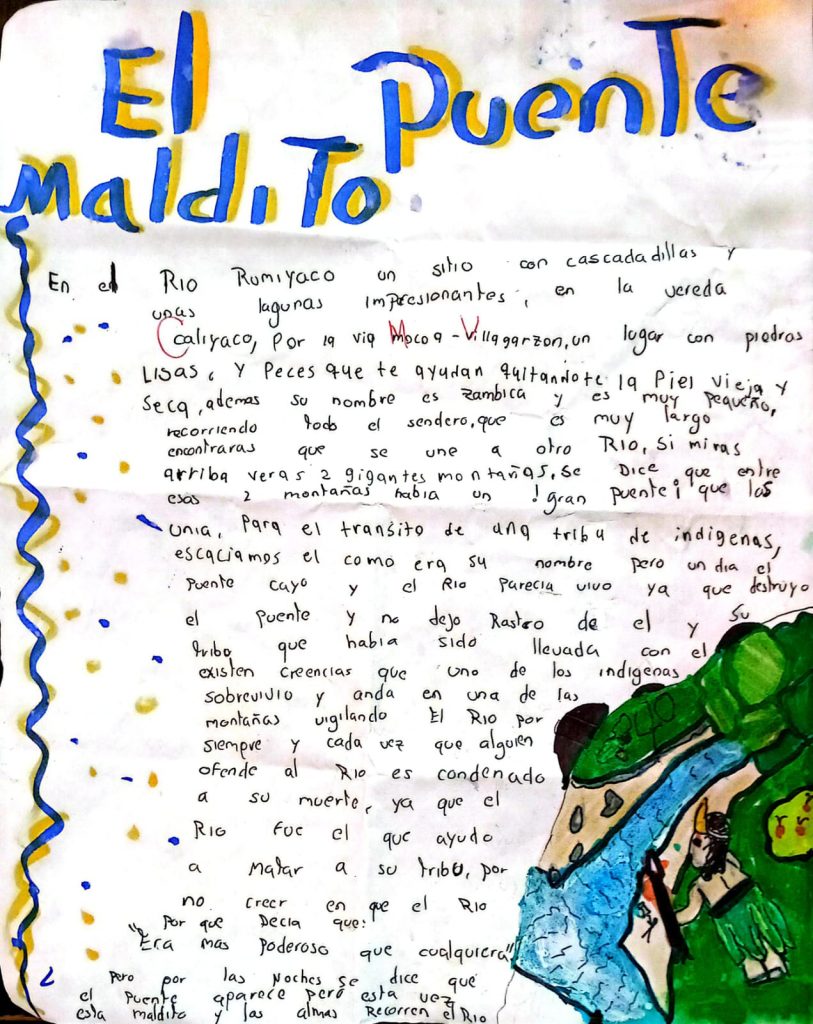 El Puente
Maldito
En el Rio Rumiyaco un sitio con cascadadillas y
unas lagunas impresionantes, en la vereda
Caliyaco, por la via Mocoa - Villagarzon, un lugar con piedras
Lisas, y Peces que te ayudan quitandote la Piel vieja y
seca, ademas su nombre es zambica y es muy pequeño,
recorriendo todo el sendero, que es muy largo
encontraras que se une a otro Rio, si miras
arriba veras 2 gigantes montañas, se Dice que entre
esas 2 montañas habia un ! gran puente ¡ que las
unia, para el transito de una tribu de indigenas,
el como era su nombre pero un dia el
puente cayo y el Rio parecia vivo ya que destruyo
el puente y no dejo Rastro de el y su
tribo que habia sido llevada con el
existen creencias que uno de los indigenas
sobrevivio y anda en una de las
montañas vigilando El Rio por
siempre y cada vez que alguien
ofende al Rio es condenado
a su muerte, ya que el
Rio fue el que ayudo
a matar a su tribu, por
no creer en que el Rio
Por que Decia que:
"Era mas Poderoso que cualquiera"
Pero por las Noches se dice que
el Puente aparece pero esta vez
esta maldito y las almas Recorren el Rio